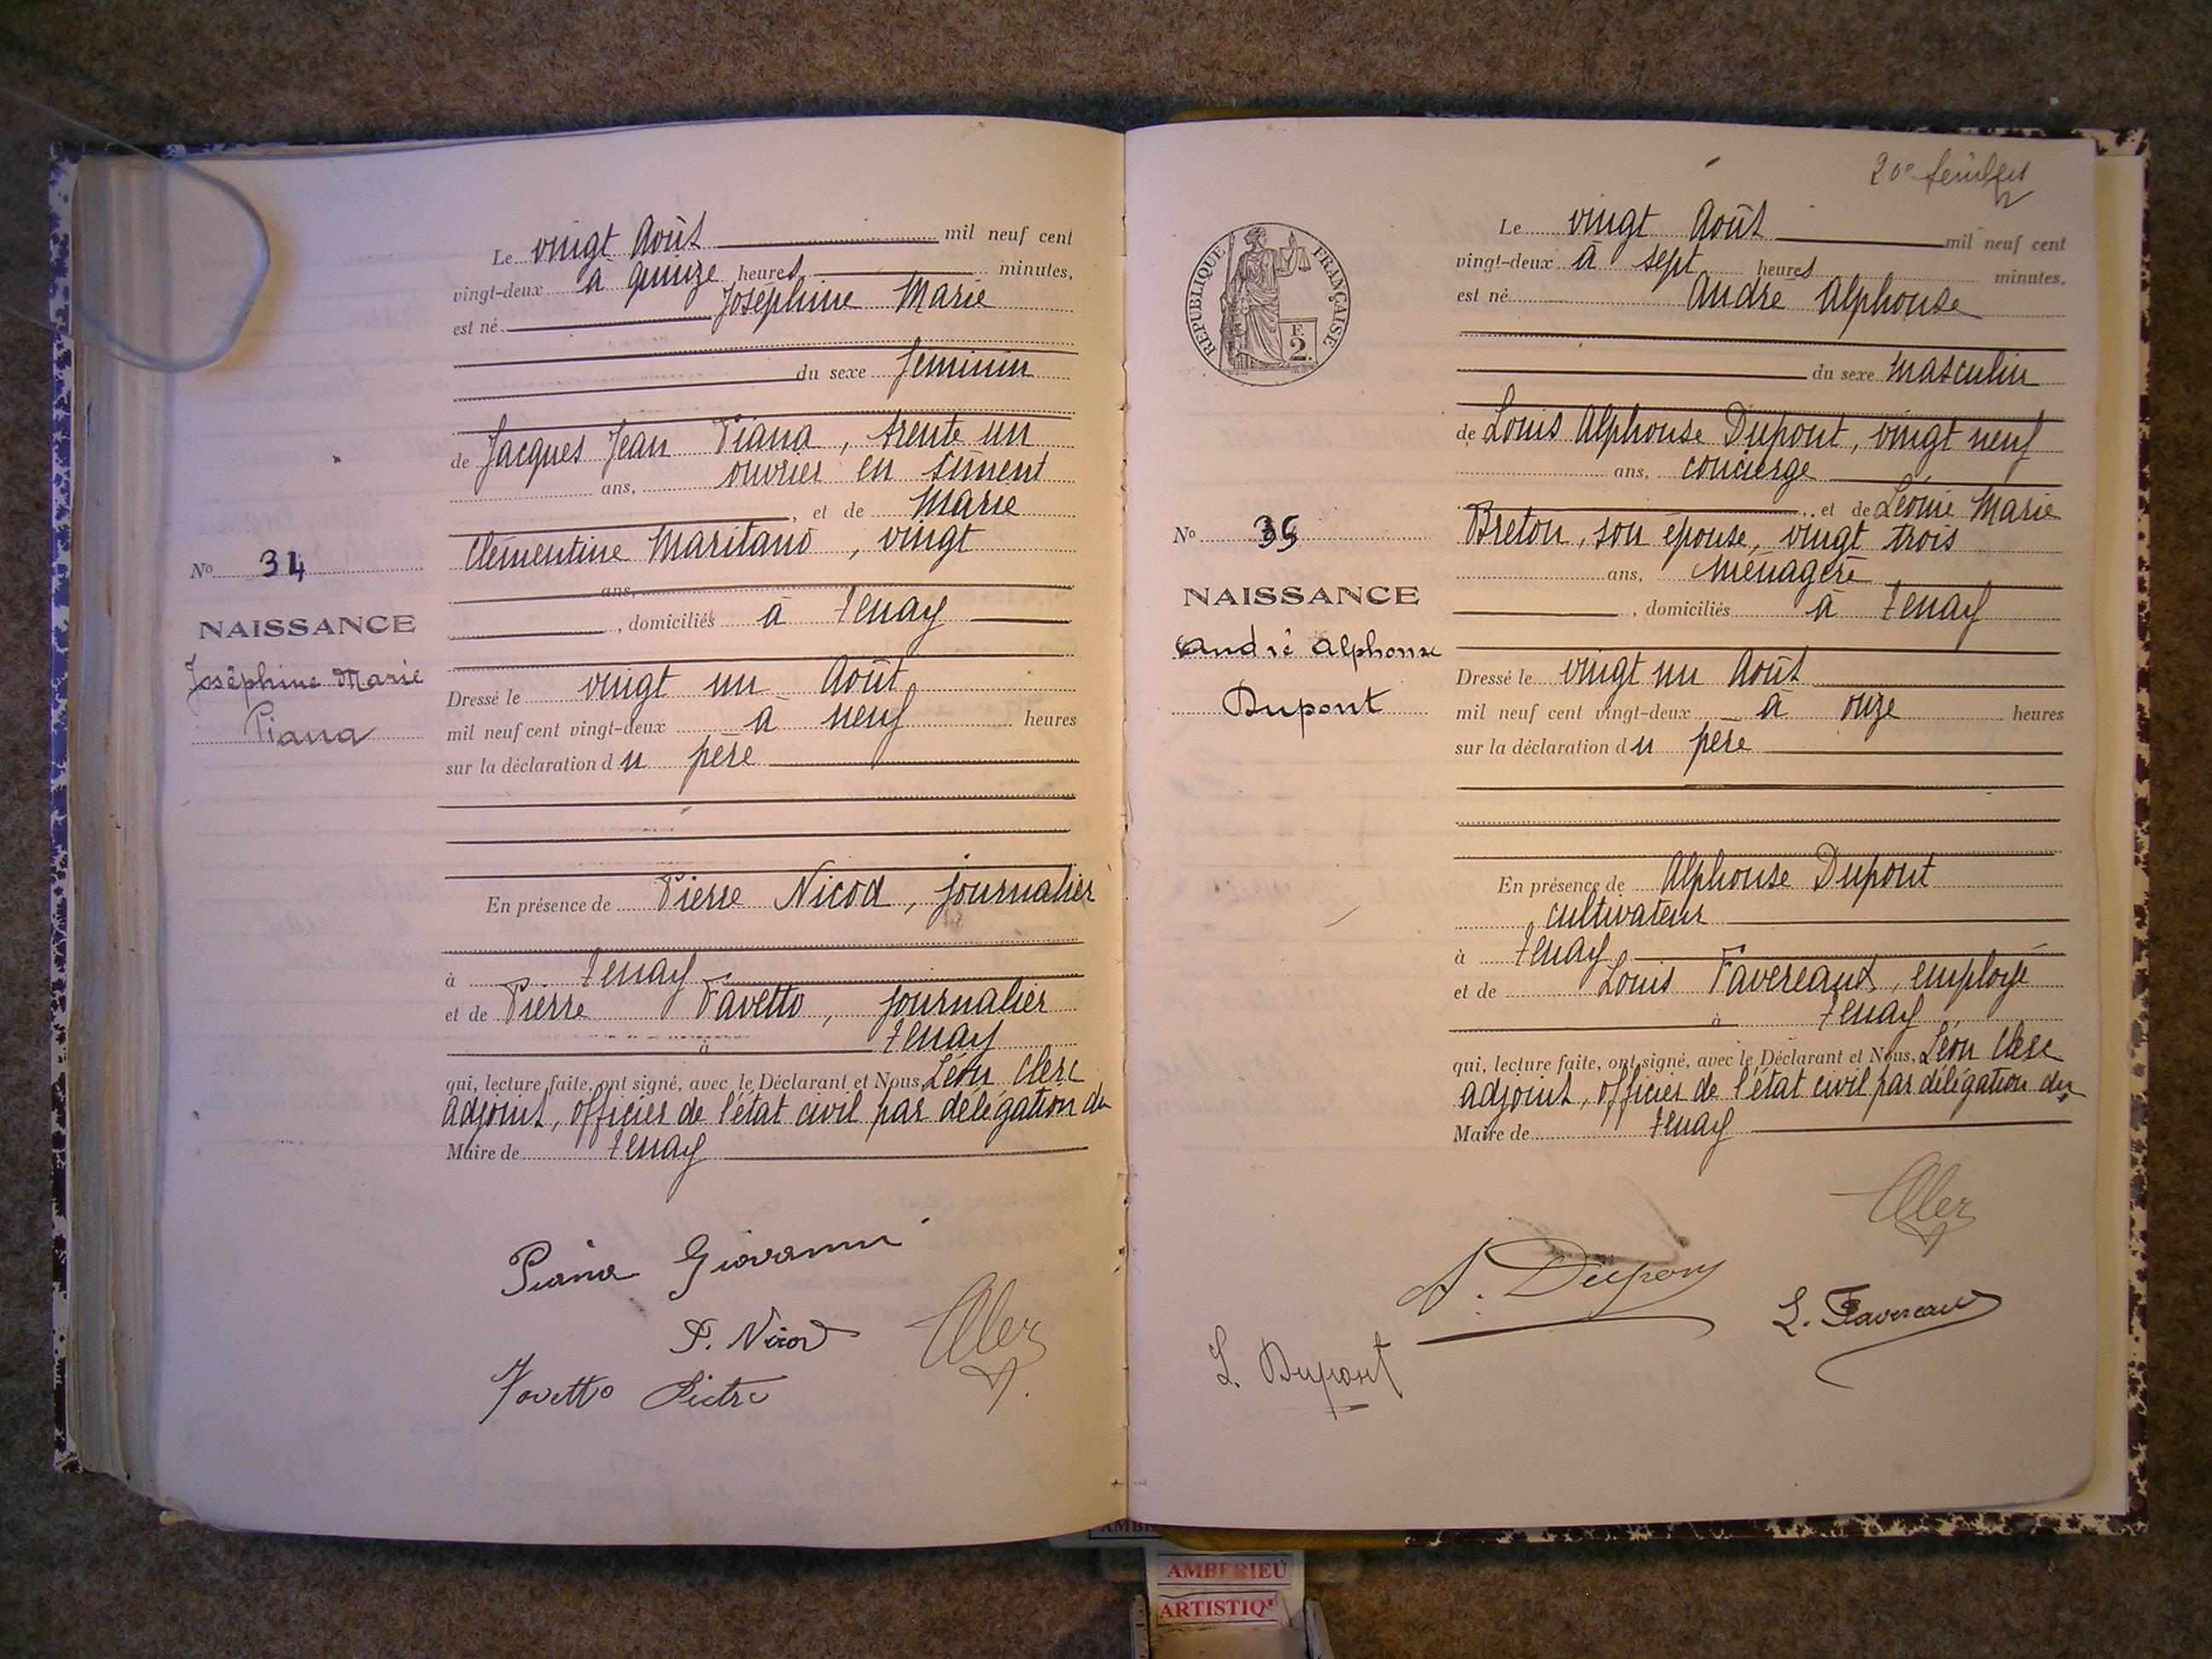 Le vingt Août mil neuf cent
vingt-deux à quinze heures minutes,
est né Joséphine Marie
du sexe féminin
de Jacques Jean Piana, trente un
ans, ouvrier en siment
, et de Marie
Clémentine Maritano, vingt
ans,
, domiciliés à Tenay
No 34
NAISSANCE
Joséphine Marie
Piana
Dressé le vingt un Août
mil neuf cent vingt-deux à neuf heures
sur la déclaration du père
En présence de Pierre Nicod, journalier
à Tenay
et de Pierre Favetto, journalier
à Tenay
qui, lecture faite, ont signé, avec le Déclarant et Nous, Léon Clerc
adjoint, officier de l'état civil par délégation du
Maire de Tenay
Piana Giovanni
P. Nicod
Favetto Pietro
20e feuillets
RÉPUBLIQUE FRANÇAISE
F.
2.
Le vingt Août mil neuf cent
vingt-deux à sept heures minutes,
est né André Alphonse
du sexe masculin
de Louis Alphonse Dupont, vingt neuf
ans, concierge
, et de Léonie Marie
Breton, son épouse, vingt trois
ans, ménagère
, domiciliés à Tenay
No 35
NAISSANCE
André Alphonse
Dupont
Dressé le vingt un Août
mil neuf cent vingt-deux à onze heures
sur la déclaration du père
En présence de Alphonse Dupont
cultivateur
à Tenay
et de Louis Favereaux, employé
à Tenay
qui, lecture faite, ont signé, avec le Déclarant et Nous, Léon Clerc
adjoint, officier de l'état civil par délégation du
Maire de Tenay
A. Dupont
L. Favereaux
L. Dupont
AMBERIEU
ARTISTIQ